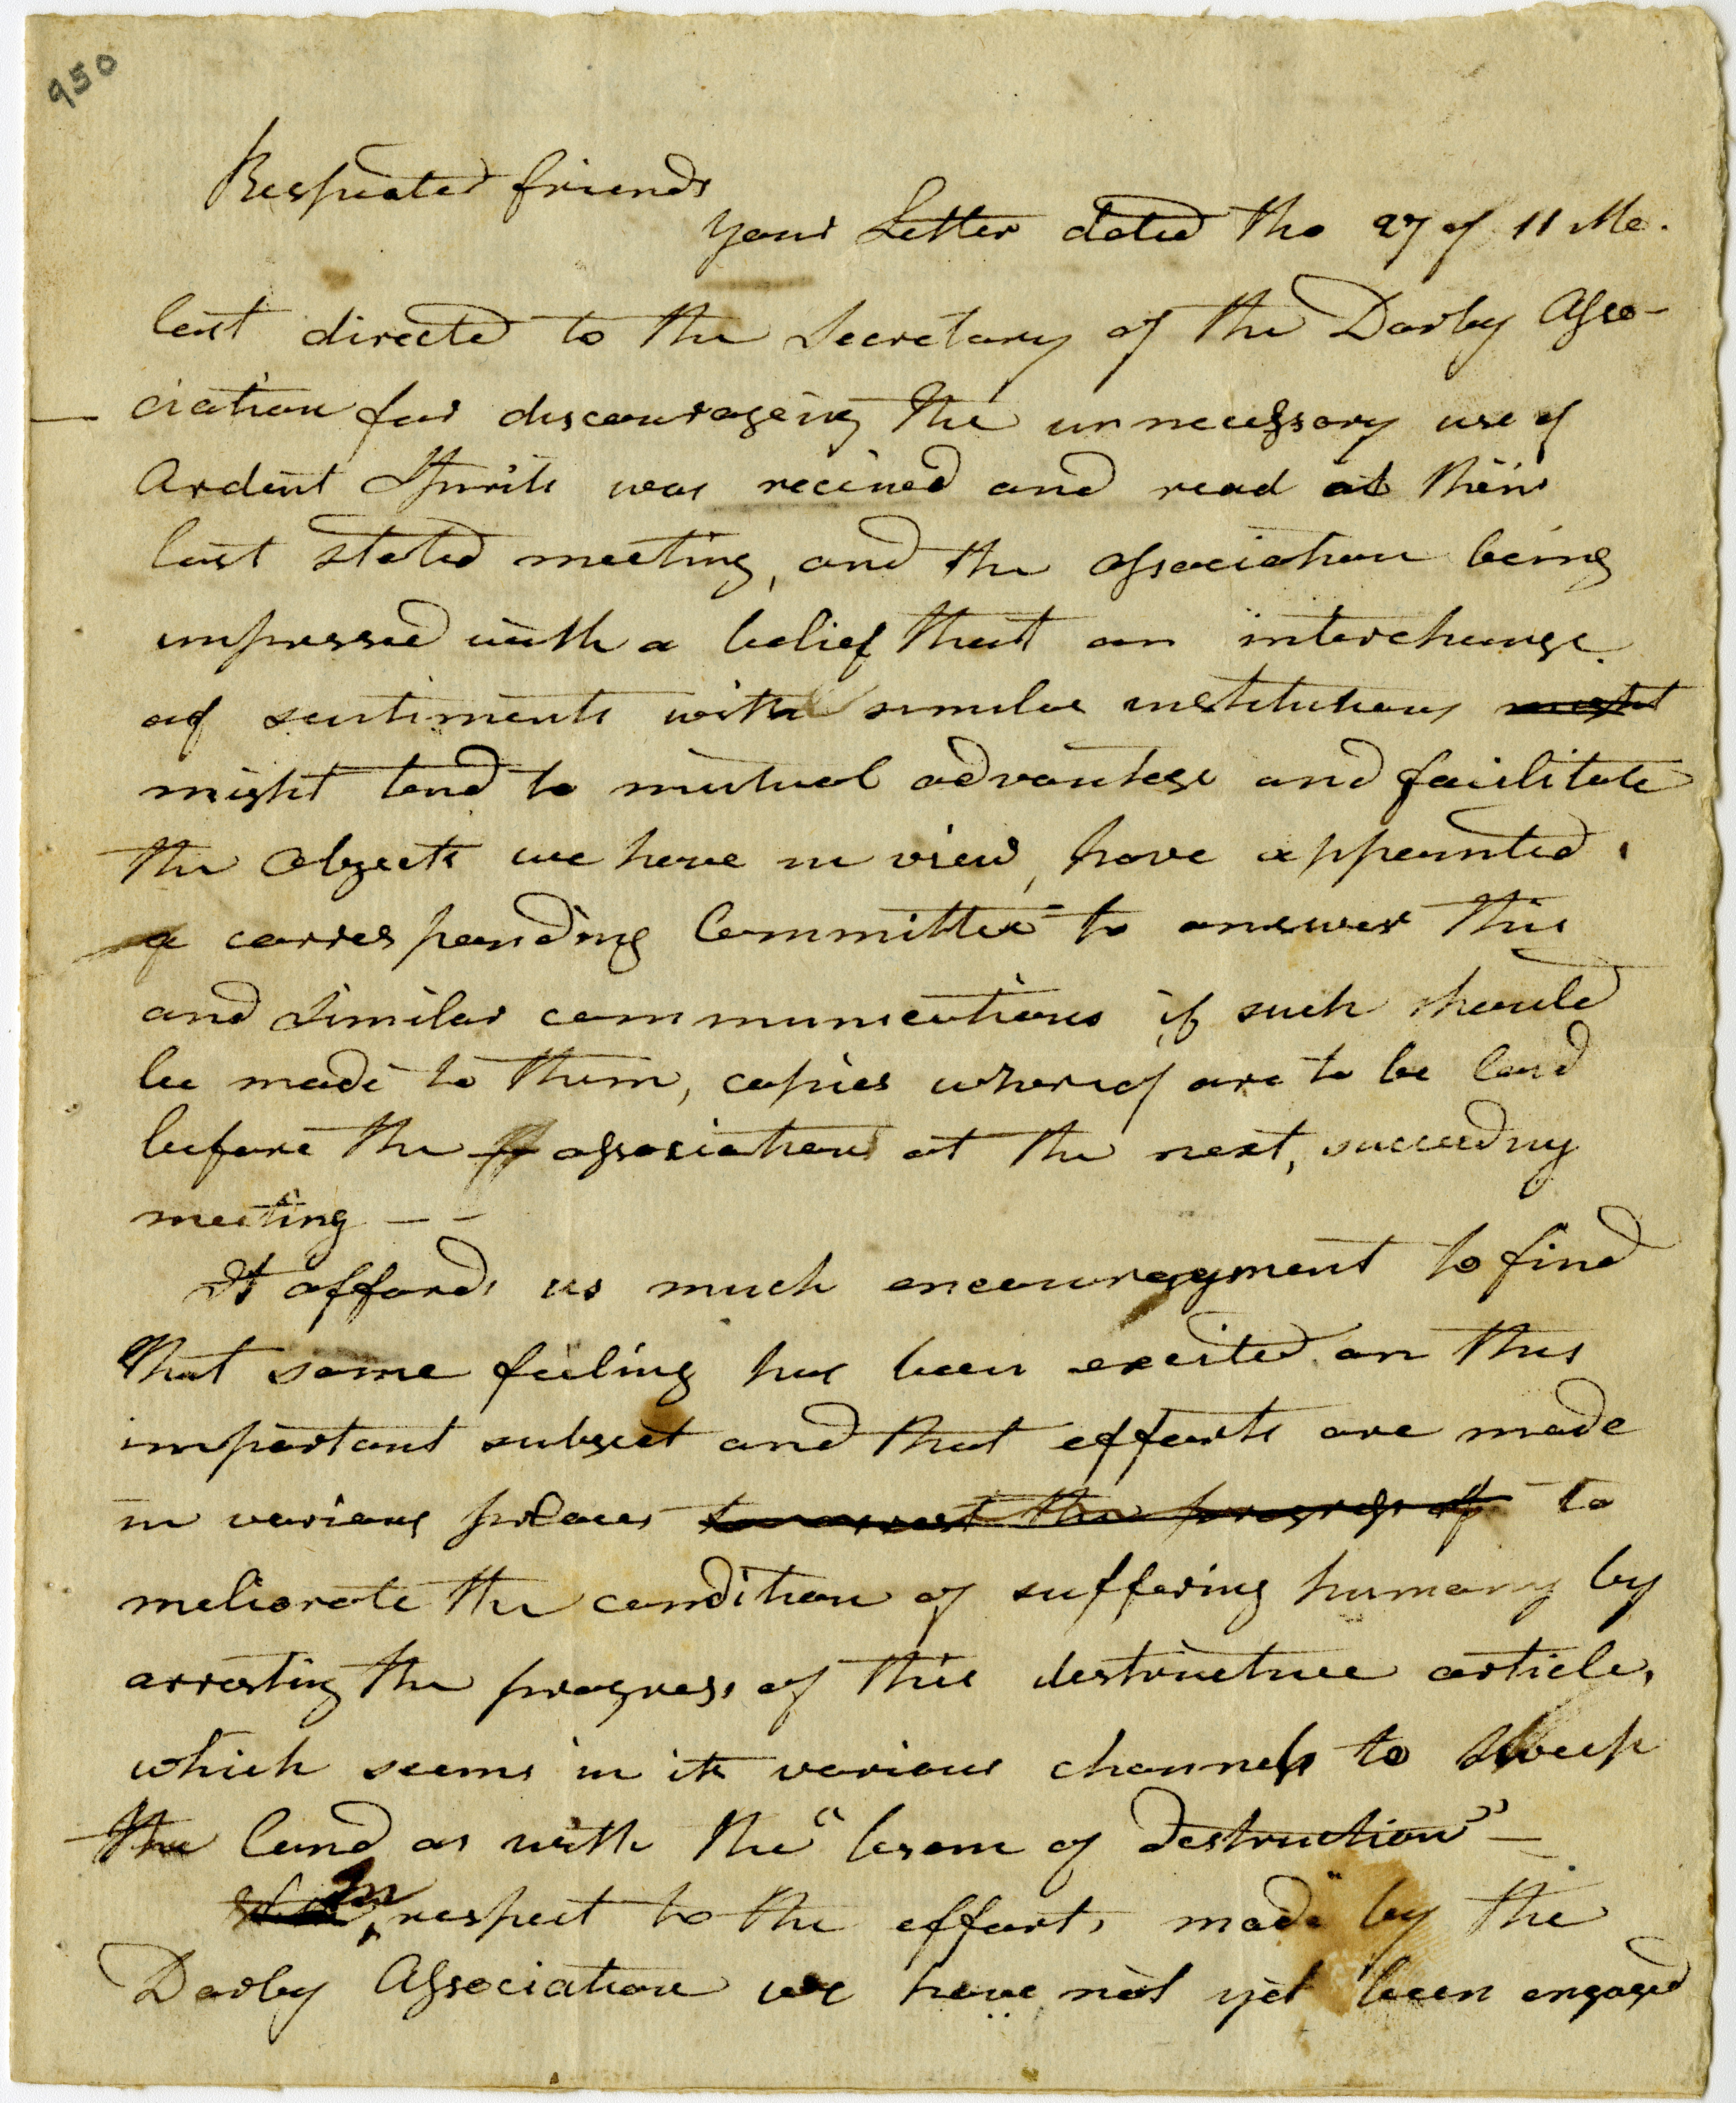 950
Respected friends
your Letter dated the 27 of 11 Mo.
last directed to the Secretary of the Darby Asso-
ciation for discouraging the unnecessary use of
Ardent Spirits was recieved and read at their
last stated meeting, and the association being
impressed with a belief that an interchange
of sentiments with similar institutions might
might tend to mutual advantage and facilitate
the Objects we have in view, have appointed
a corresponding Committee to answer this
and similar communications if such should
be made to them, copies whereof are to be laid
before the association at the next, succeeding
meeting — —
It affords us much encouragement to find
that some feeling has been excited on this
important subject and that efforts are made
in various places to arrest the progress of to
meliorate the condition of suffering humany by
arresting the progress of this destructive article,
which seems in its various channels to sweep
the land as with the "besom of destruction" —
In respect to the efforts made by the
Darby Association we have not yet been engaged